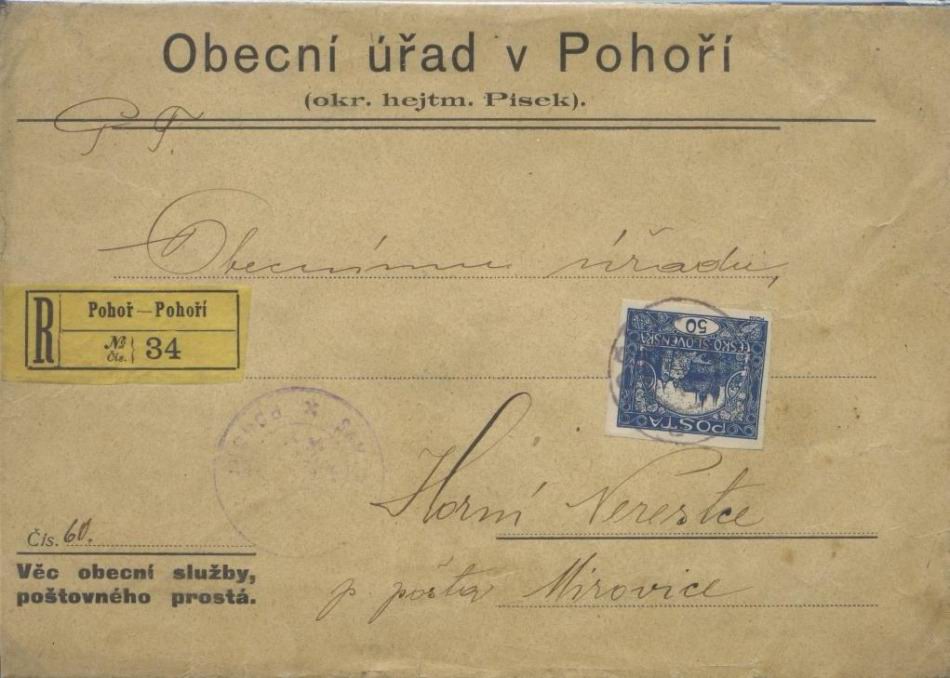 Obecní úřad v Pohoří
(okr. hejtm. Pisek).
P. T.
Obecnímu úřadu,
R
Pohoř — Pohoří
№
čís. 34
50
ČESKO-SLOVENSKÁ
POŠTA
Horní Nerestce
Čís. 60.
Věc obecní služby,
poštovného prostá.
p. pošta Mirovice